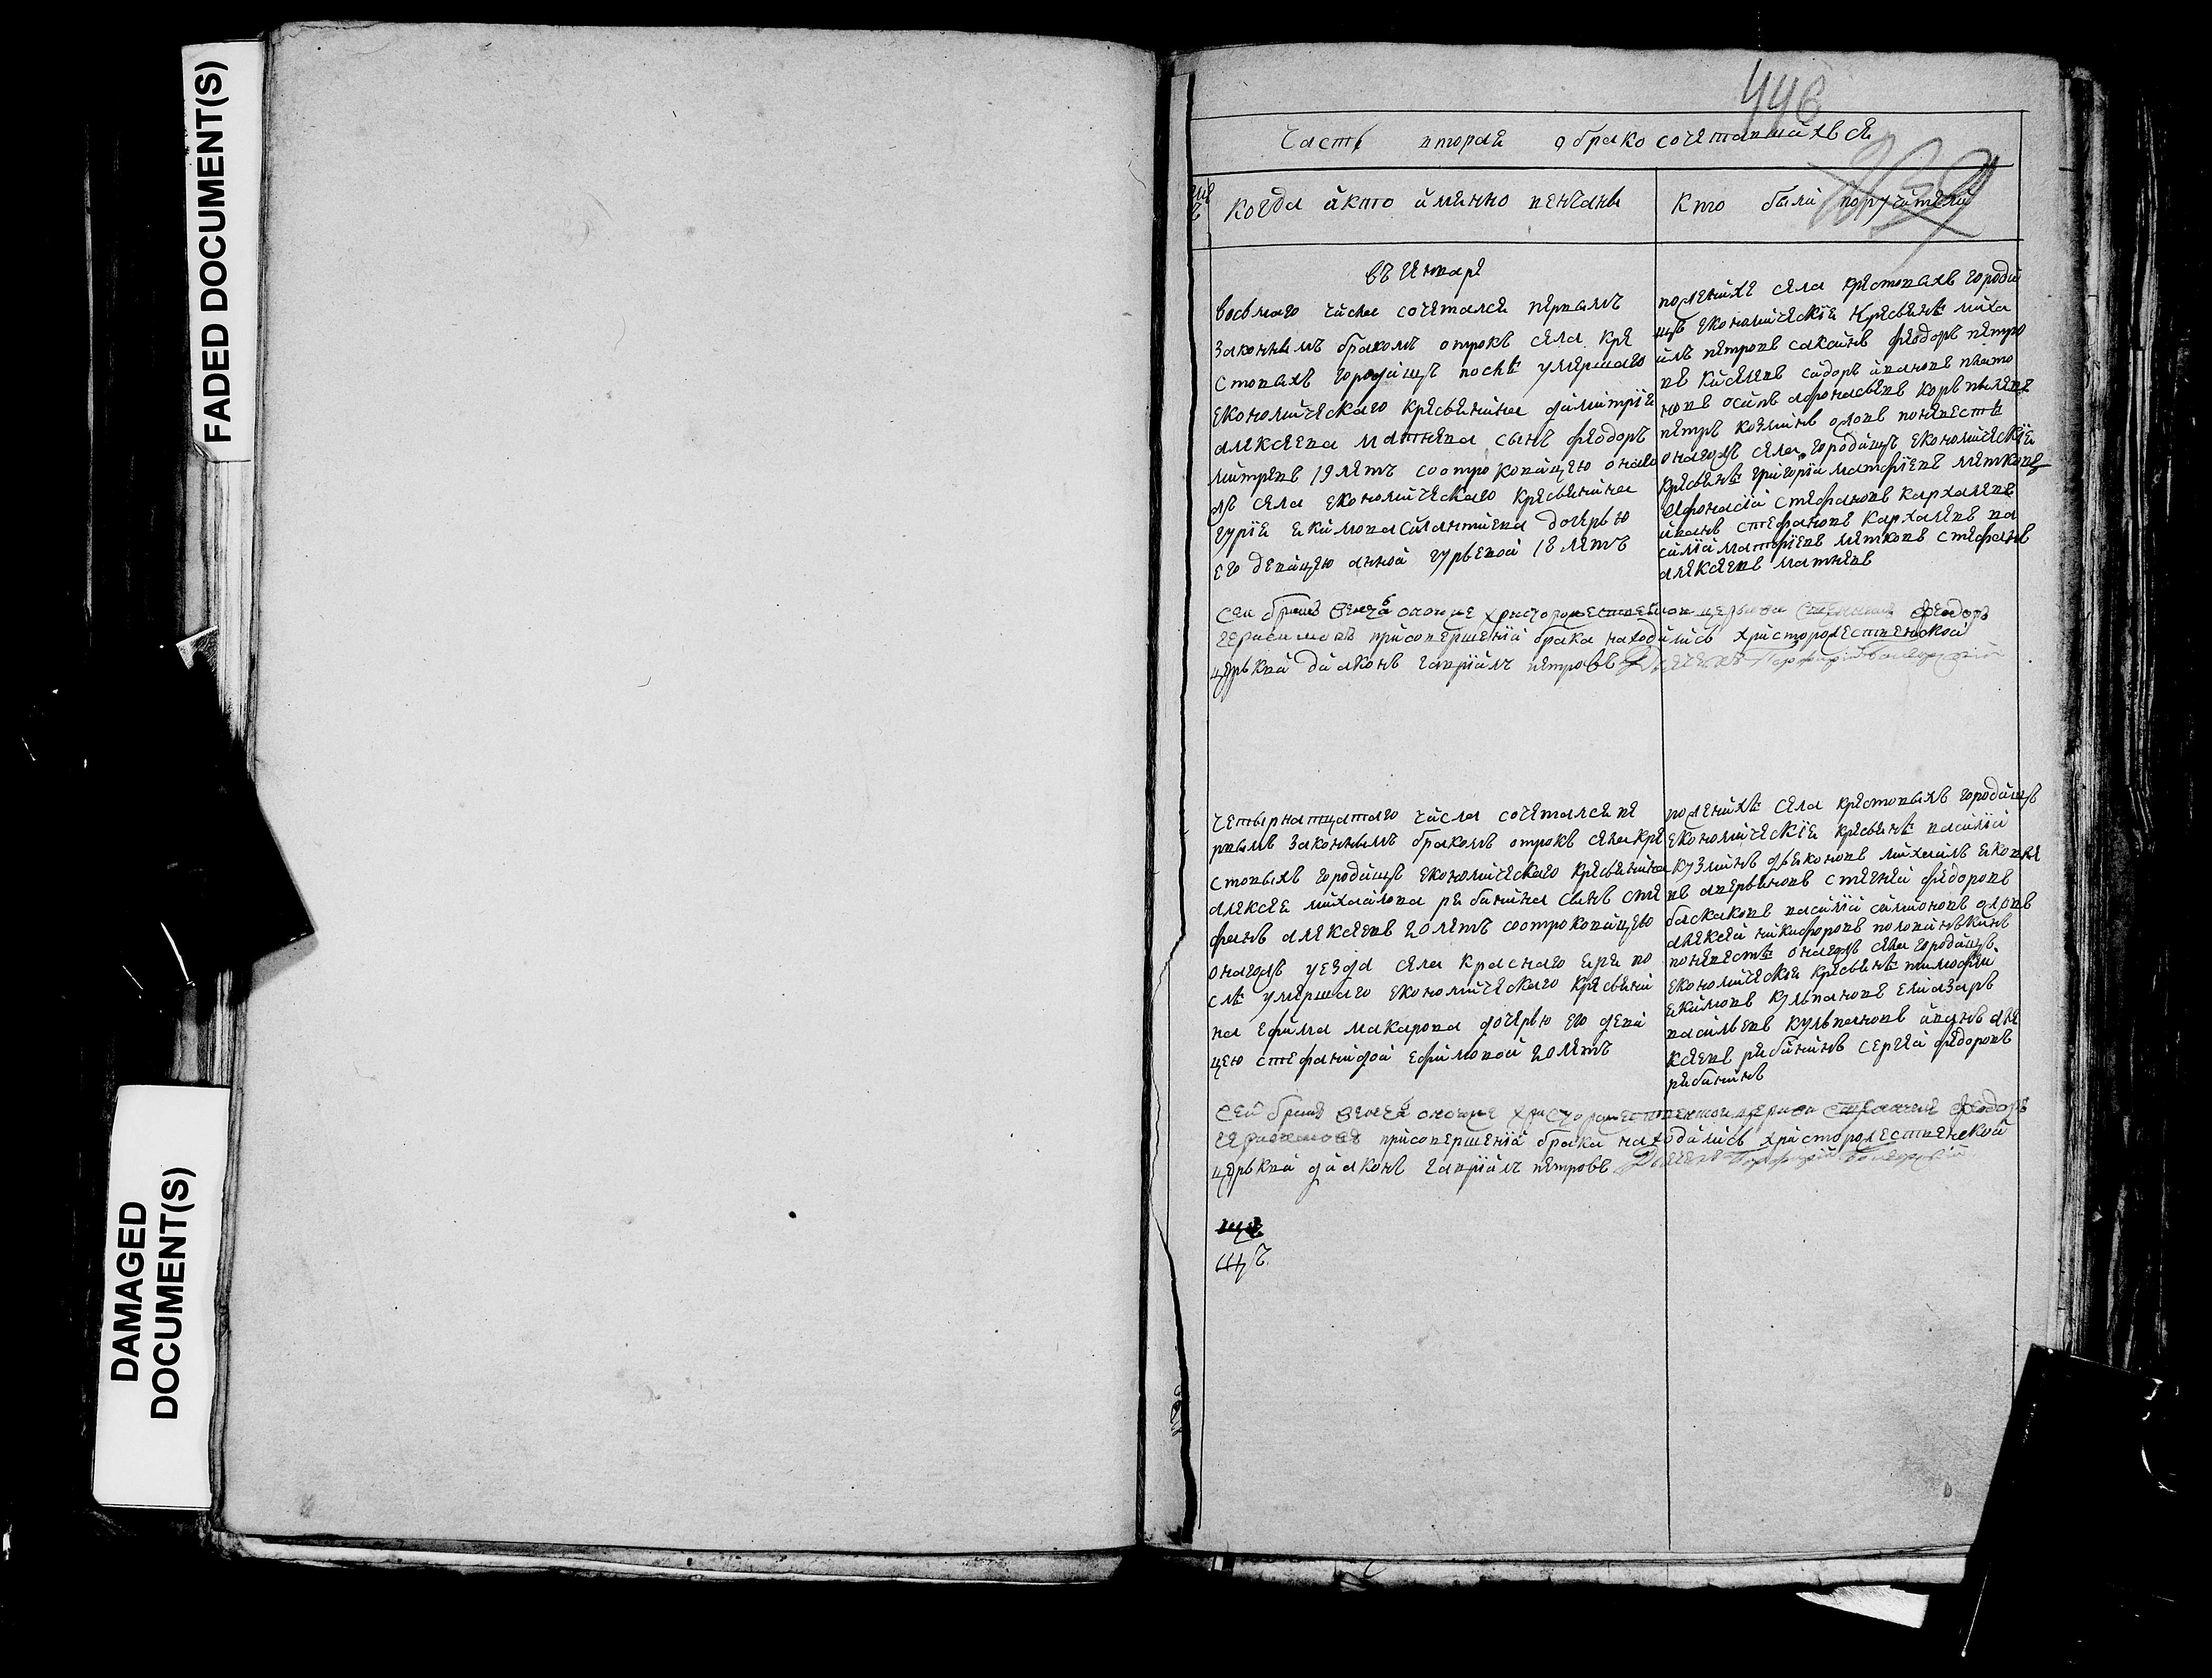 FADED DOCUMENT(S)
DAMAGED
DOCUMENT(S)
446
Часть вторая о бракосочетавшихъся
Когда икто именно венчаны
Кто были поручители
въ генваре
восьмаго числа сочетался первымъ
законнымъ бракомъ отрокъ села кре
стовыхъ городищъ после умершаго
економическаго кресьянина димитрия
алексеева матнева сынъ феодоръ
митревъ 19 летъ соотроковицею онаго
жъ села економическаго кресьянина
гурия екимова дочерью
его девицею анной гурьевой 18 летъ
пожениху села крестовыхъ городи
щъ економическия кресьяне миха
илъ петровъ сакаинъ феодоръ петро
въ киселевъ сидоръ ивановъ плато
новъ осипъ афонасьевъ
петръ козминъ оловъ поневесте
онагожъ села городищъ економическия
кресьяне григорий матфиевъ метковъ
афонасий стефановъ кархалевъ
иванъ стефановъ кархалевъ ва
силий матфиевъ метковъ стефанъ
алексеевъ матневъ
Сей бракъ венча оноице христорождественской церькви священникъ феодоръ
герасимовъ присовершений брака находились христорождественской
церькви диаконъ гавриилъ петровъ Дьячекъ Порфирий
четырнатцатаго числа сочетался пе
рвымъ законнымъ бракомъ отрокъ села кре
стовыхъ городищъ економическаго кресьянина
алексея михаилова рябинина сынъ сте
фанъ алексеевъ 20 летъ соотроковицею
онагожъ уезда села краснаго яра по
сле умершаго економическаго кресьяни
на ефима макарова дочерью его деви
цею стефанидой ефимовой 20 летъ
пожениху села крестовыхъ городищъ
економическия кресьяне василий
кузминъ дьяконовъ михаилъ яковле
въ аверьяновъ стегней федоровъ
баскаковъ василий симионовъ оловъ
алексей никифоровъ половинькинъ
поневесте онагожъ села городищъ
економическия кресьяне тимофей
екимовъ кульпановъ елиазаръ
васильевъ кульпановъ иванъ але
ксеевъ рябининъ сергей федоровъ
рябининъ
Сей бракъ венча оноице христорождественской церькви священникъ феодоръ
герасимовъ присовершений брака находились христорождественской
церькви диаконъ гавриилъ петровъ Дьячекъ Порфирий